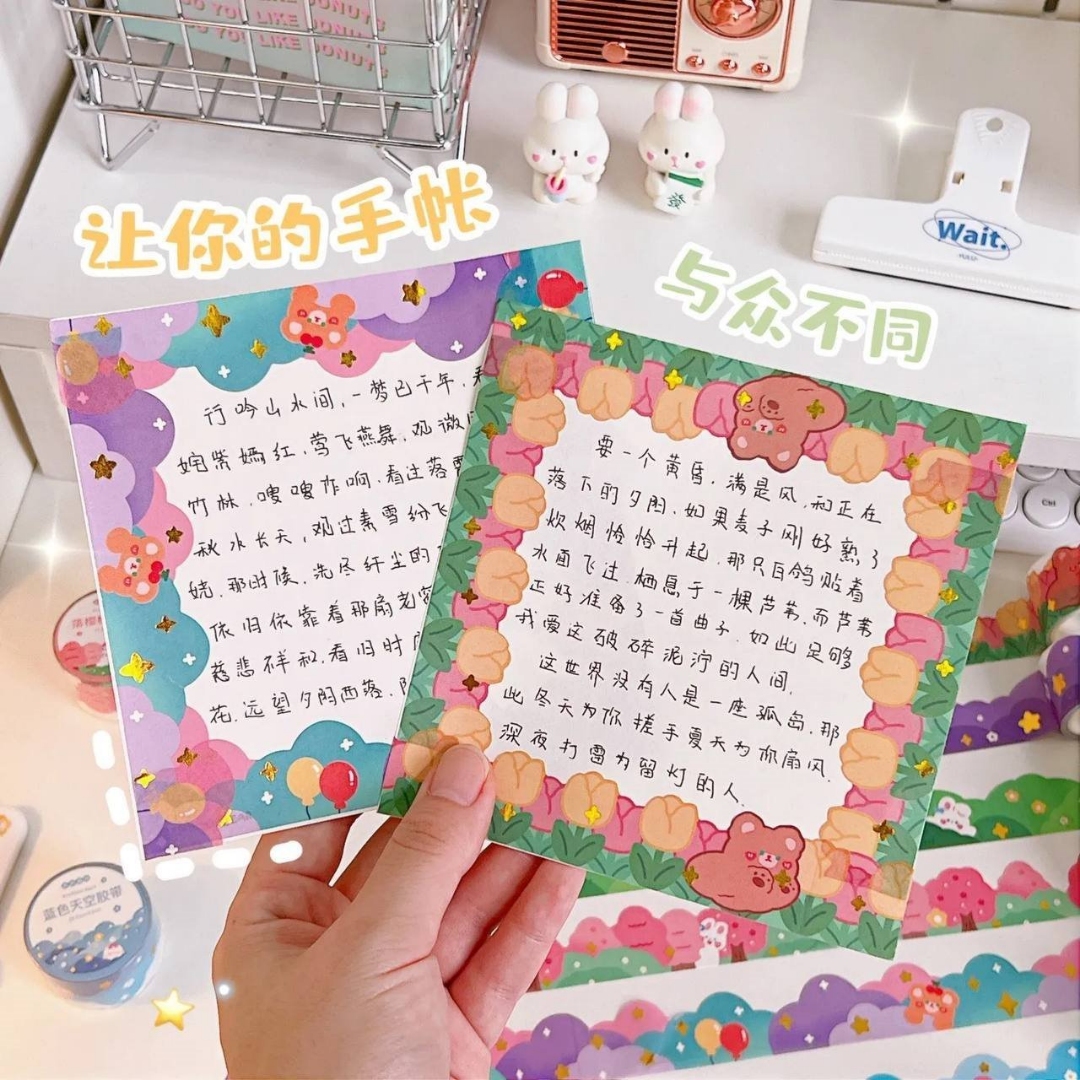 DO YOU LIKE DONUTS
發
Wait.
让你的手帐
与众不同
行吟山水间,一梦已千年,看
姹紫嫣红,莺飞燕舞,观微风
竹林,嗖嗖作响.看过落霞
秋水长天,观过素雪纷飞
娆.那时候,洗尽纤尘的
依旧依靠着那扇老窗
慈悲祥和.看旧时
花.远望夕阳西落.
要一个黄昏,满是风,和正在
落下的夕阳.如果麦子刚好熟了
炊烟恰恰升起,那只白鸽贴着
水面飞过.栖息于一棵芦苇.而芦苇
正好准备了一首曲子.如此足够
我爱这破碎泥泞的人间.
这世界没有人是一座孤岛.那
此冬天为你搓手夏天为你扇风.
深夜打雷为留灯的人.
Ctrl
蓝色天空胶带